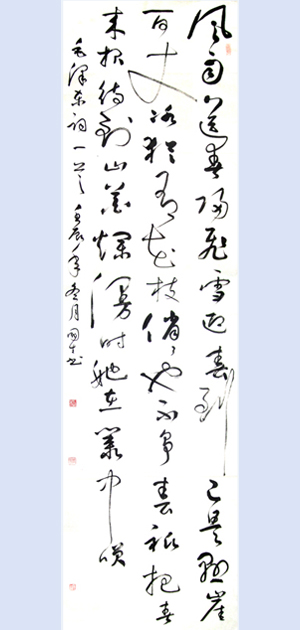 風雨送春归飛雪迎春到已是懸崖
百丈冰犹有花枝俏々也不争春祇把春
来报待到山花爛漫时她在叢中咲
毛泽东词一首壬辰年冬月